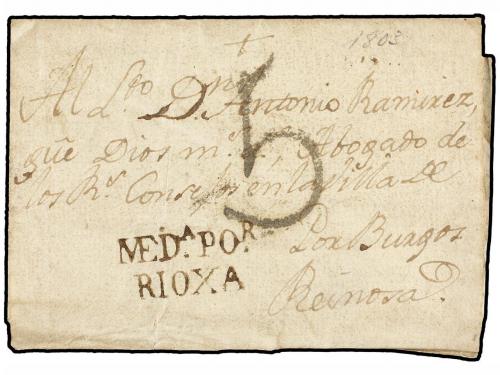 1803
+
Al Ldo Dn Antonio Ramirez,
que Dios m.s a.s, Abogado de
los Rs. Consejos en la Villa de
Por Burgos
Reinosa.
5
MED.A PO.R
RIOXA